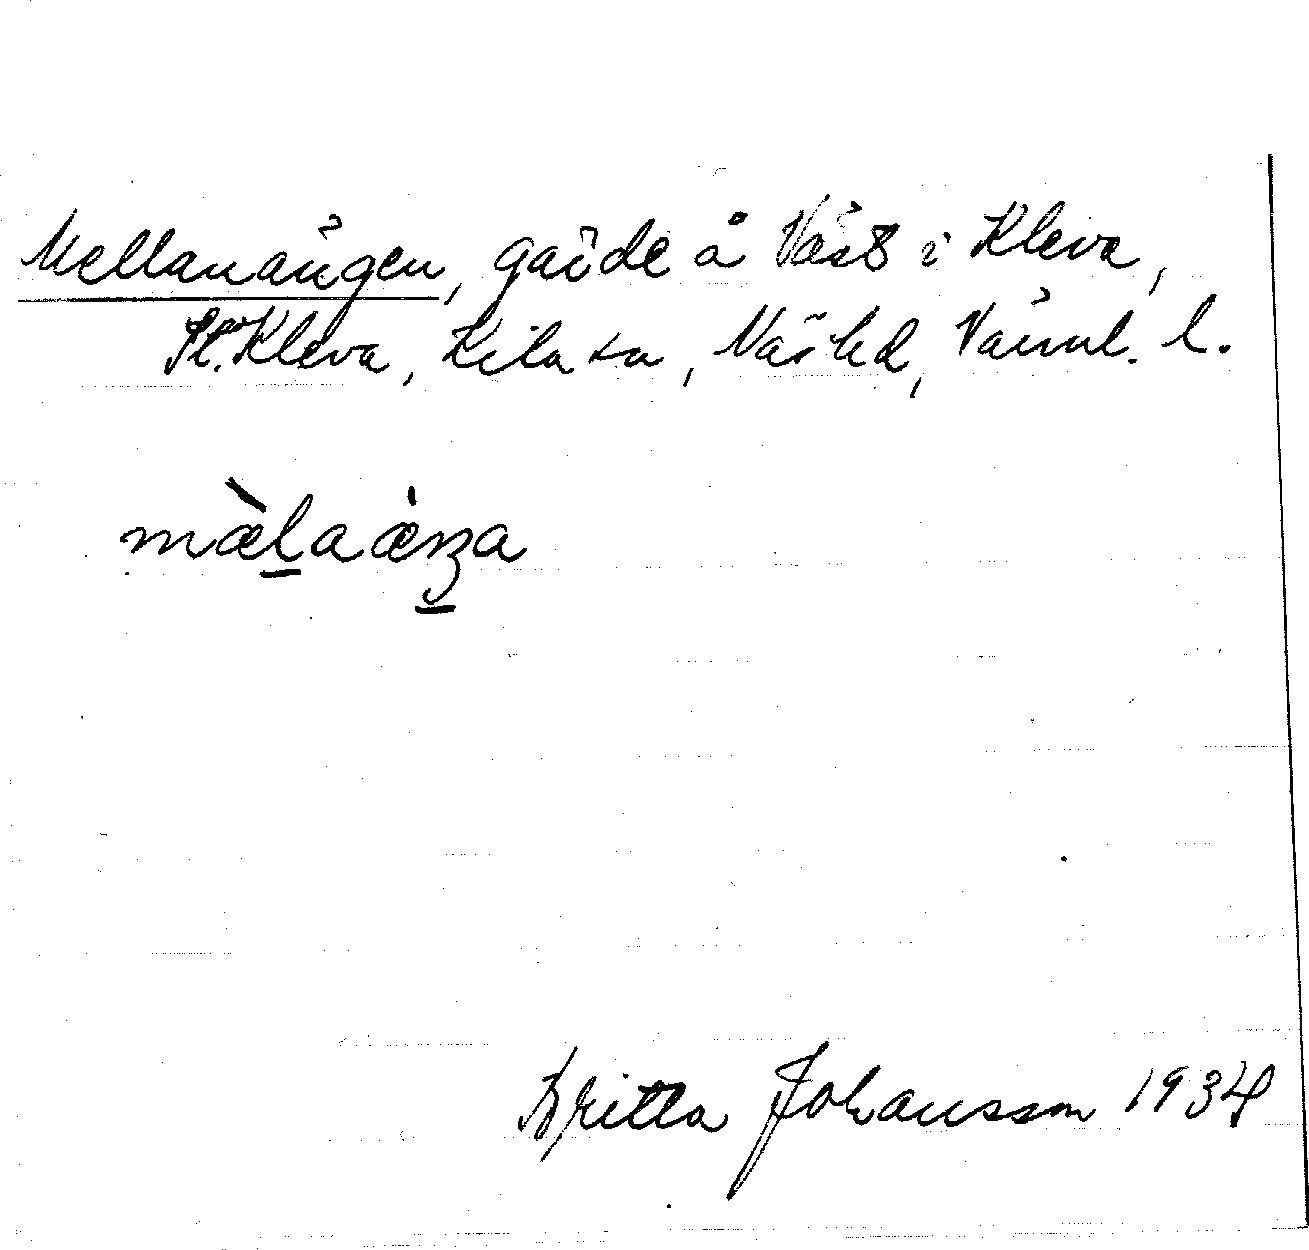 Mellanängen, gärde å Väst i Kleva,
St. Kleva, Kila sn, Näs hd, Värml. l.
mæ̀l̠aæ̀ŋ̠a
Britta Johansson 1934